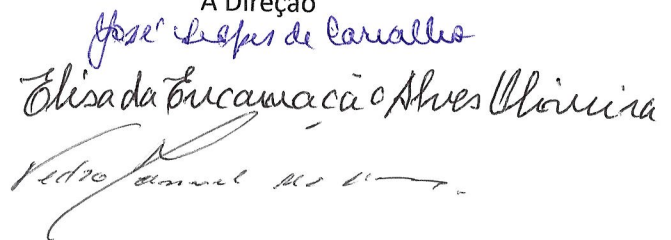 A Direção
José Lopes de Carvalho
Elisa da Encarnação Alves Oliveira
Pedro Manuel